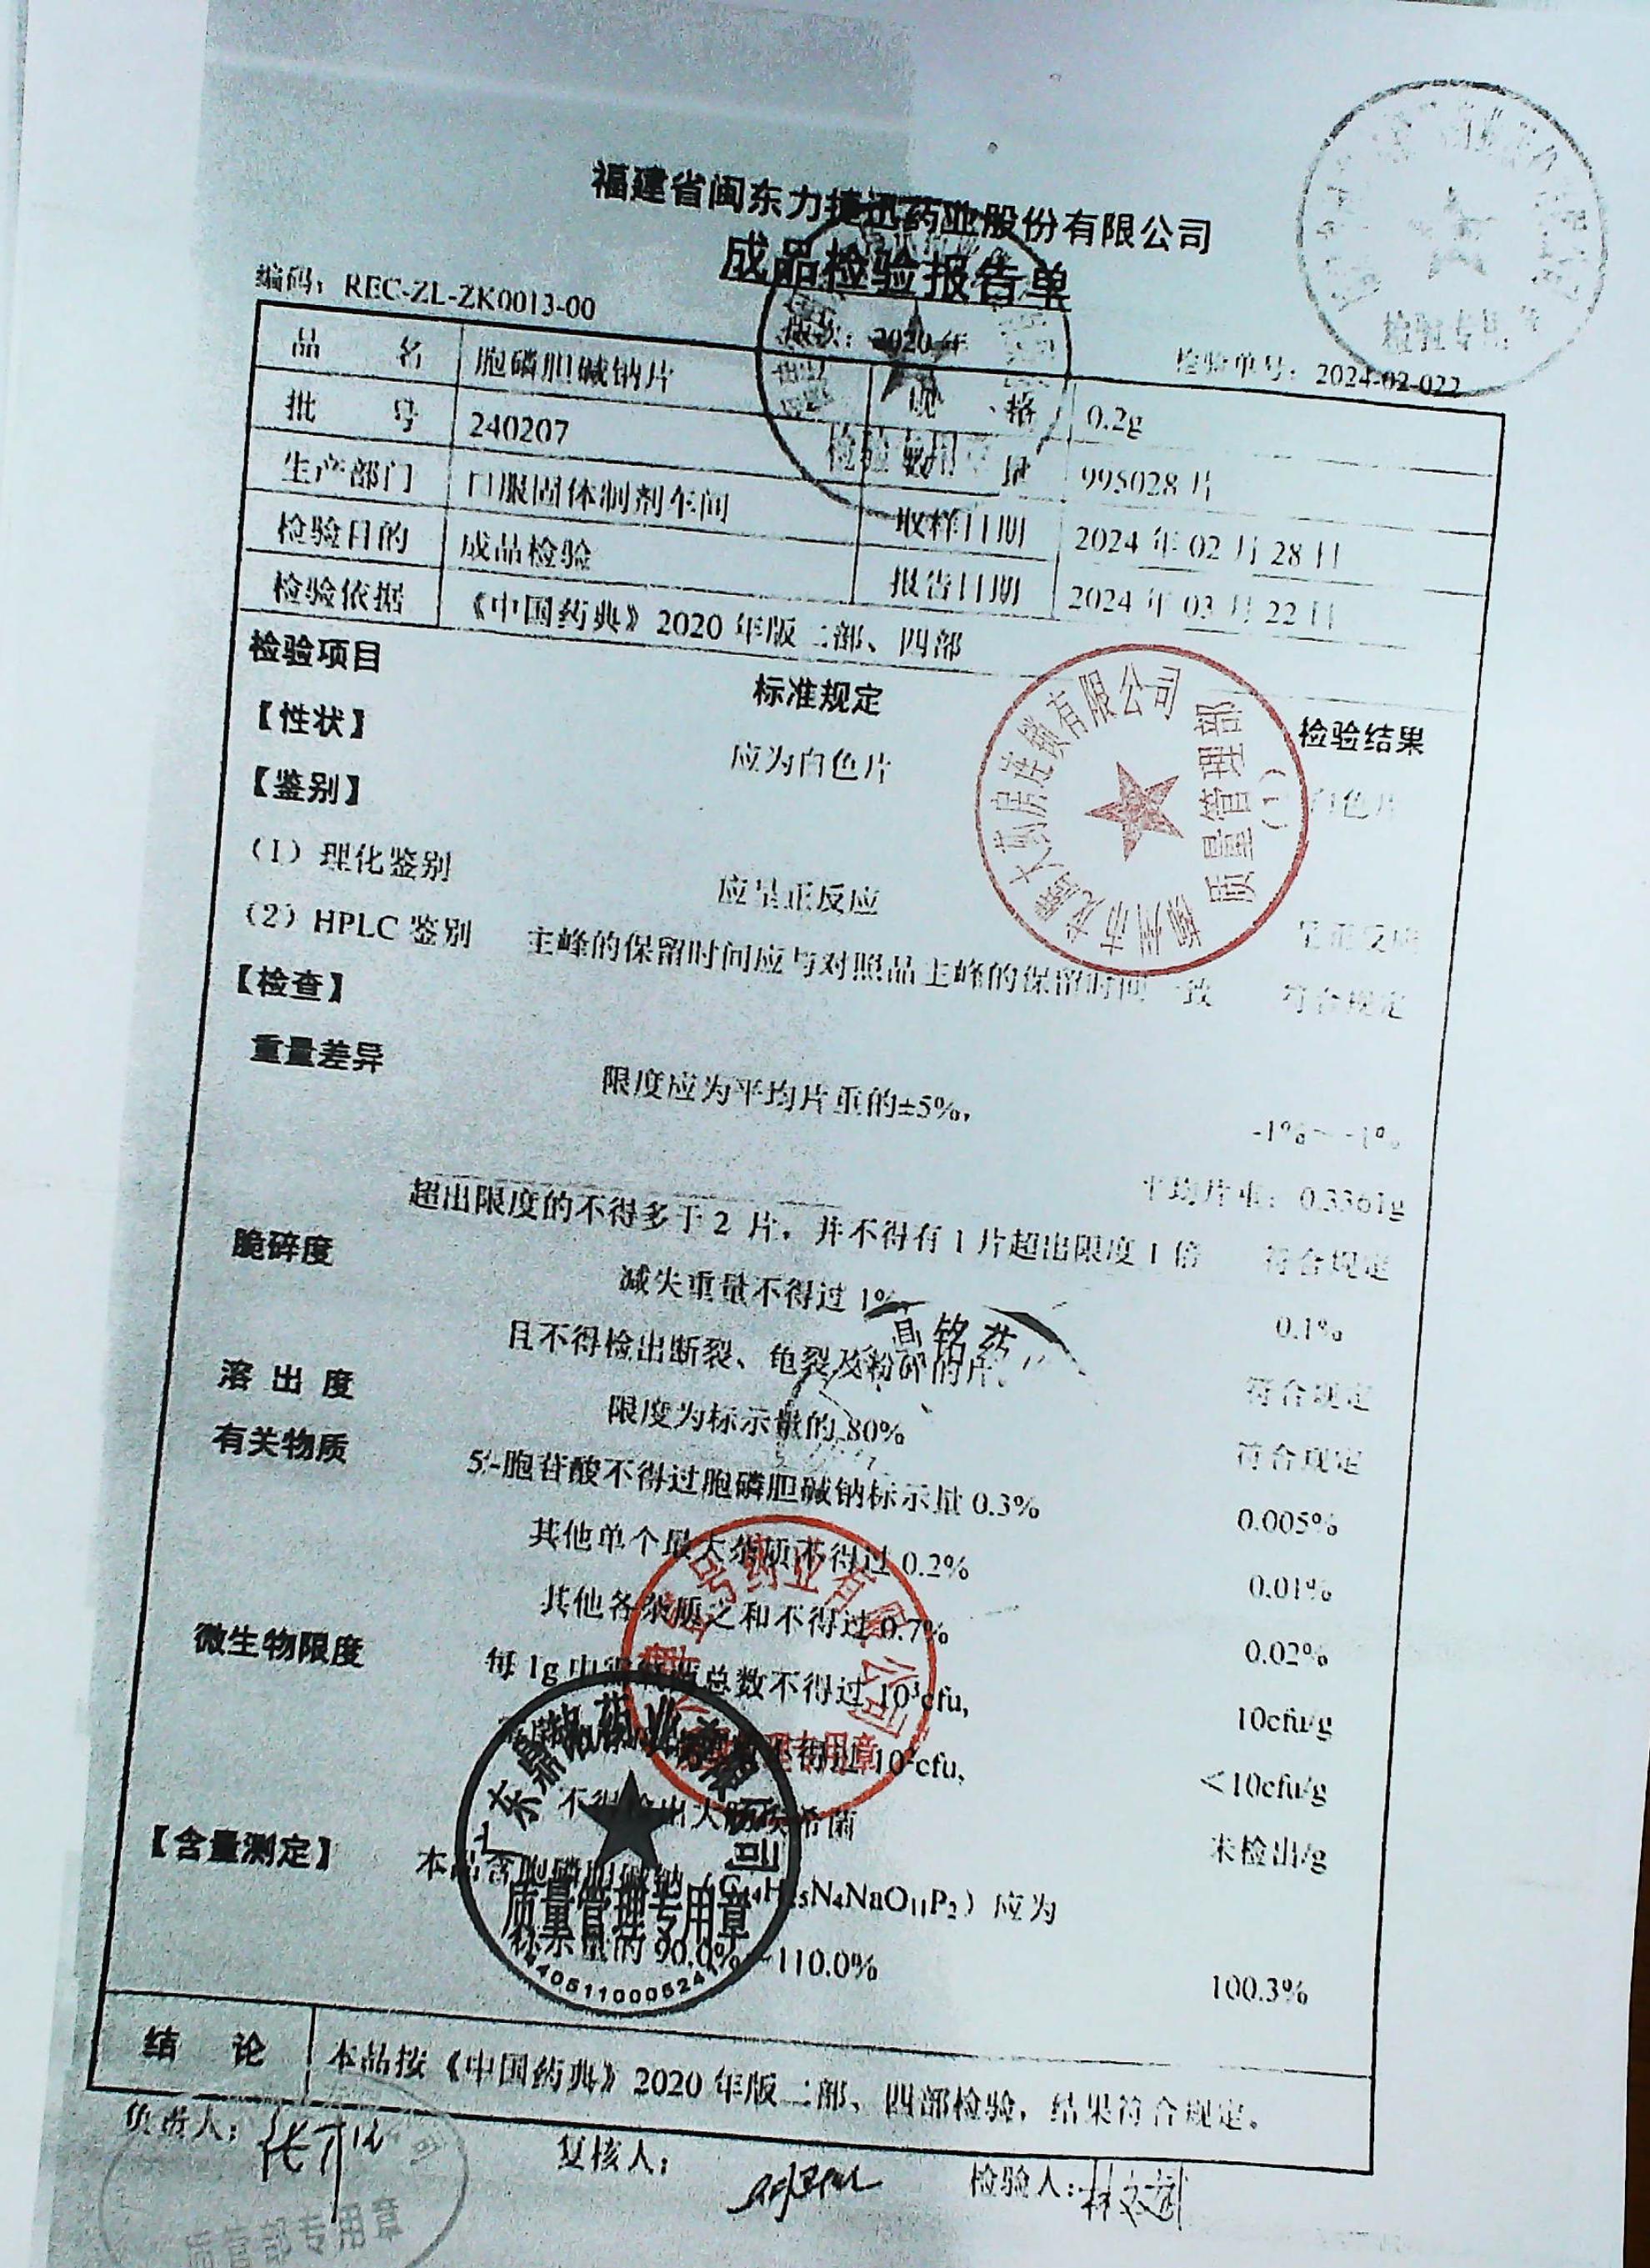 福建省闽东力捷迅药业股份有限公司
成品检验报告单
编码：REC-ZL-ZK0013-00
版次：2020年
检验单号：2024-02-022
检验专用章
品 名 胞磷胆碱钠片 规 格 0.2g
批 号 240207 数 量 995028片
检验专用
生产部门 口服固体制剂车间 取样日期 2024年02月28日
检验目的 成品检验 报告日期 2024年03月22日
检验依据 《中国药典》2020年版二部、四部
检验项目 标准规定 检验结果
【性状】 应为白色片 白色片
柳州市龙腾大药房连锁有限公司
质量管理部
(1)
【鉴别】
（1）理化鉴别 应呈正反应 呈正反应
（2）HPLC鉴别 主峰的保留时间应与对照品主峰的保留时间一致 符合规定
【检查】
重量差异 限度应为平均片重的±5%， -1%~
平均片重：0.3361g
超出限度的不得多于2片，并不得有1片超出限度1倍 符合规定
脆碎度 减失重量不得过1%， 0.1%
鼎铭药
且不得检出断裂、龟裂及粉碎的片。 符合规定
溶出度 限度为标示量的80% 符合规定
有关物质 5'-胞苷酸不得过胞磷胆碱钠标示量0.3% 0.005%
其他单个最大杂质不得过0.2% 0.01%
其他各杂质之和不得过0.7% 0.02%
药业有限公司
专用章
微生物限度 每1g中需氧菌总数不得过10³cfu， 10cfu/g
不得过10²cfu， <10cfu/g
不得检出大肠埃希菌 未检出/g
广东鼎铭药业有限公司
质量管理专用章
【含量测定】 本品含胞磷胆碱钠（C₁₄H₂₅N₄NaO₁₁P₂）应为
标示量的90.0%~110.0% 100.3%
结 论 本品按《中国药典》2020年版二部、四部检验，结果符合规定。
负责人： 复核人： 检验人：
质管部专用章